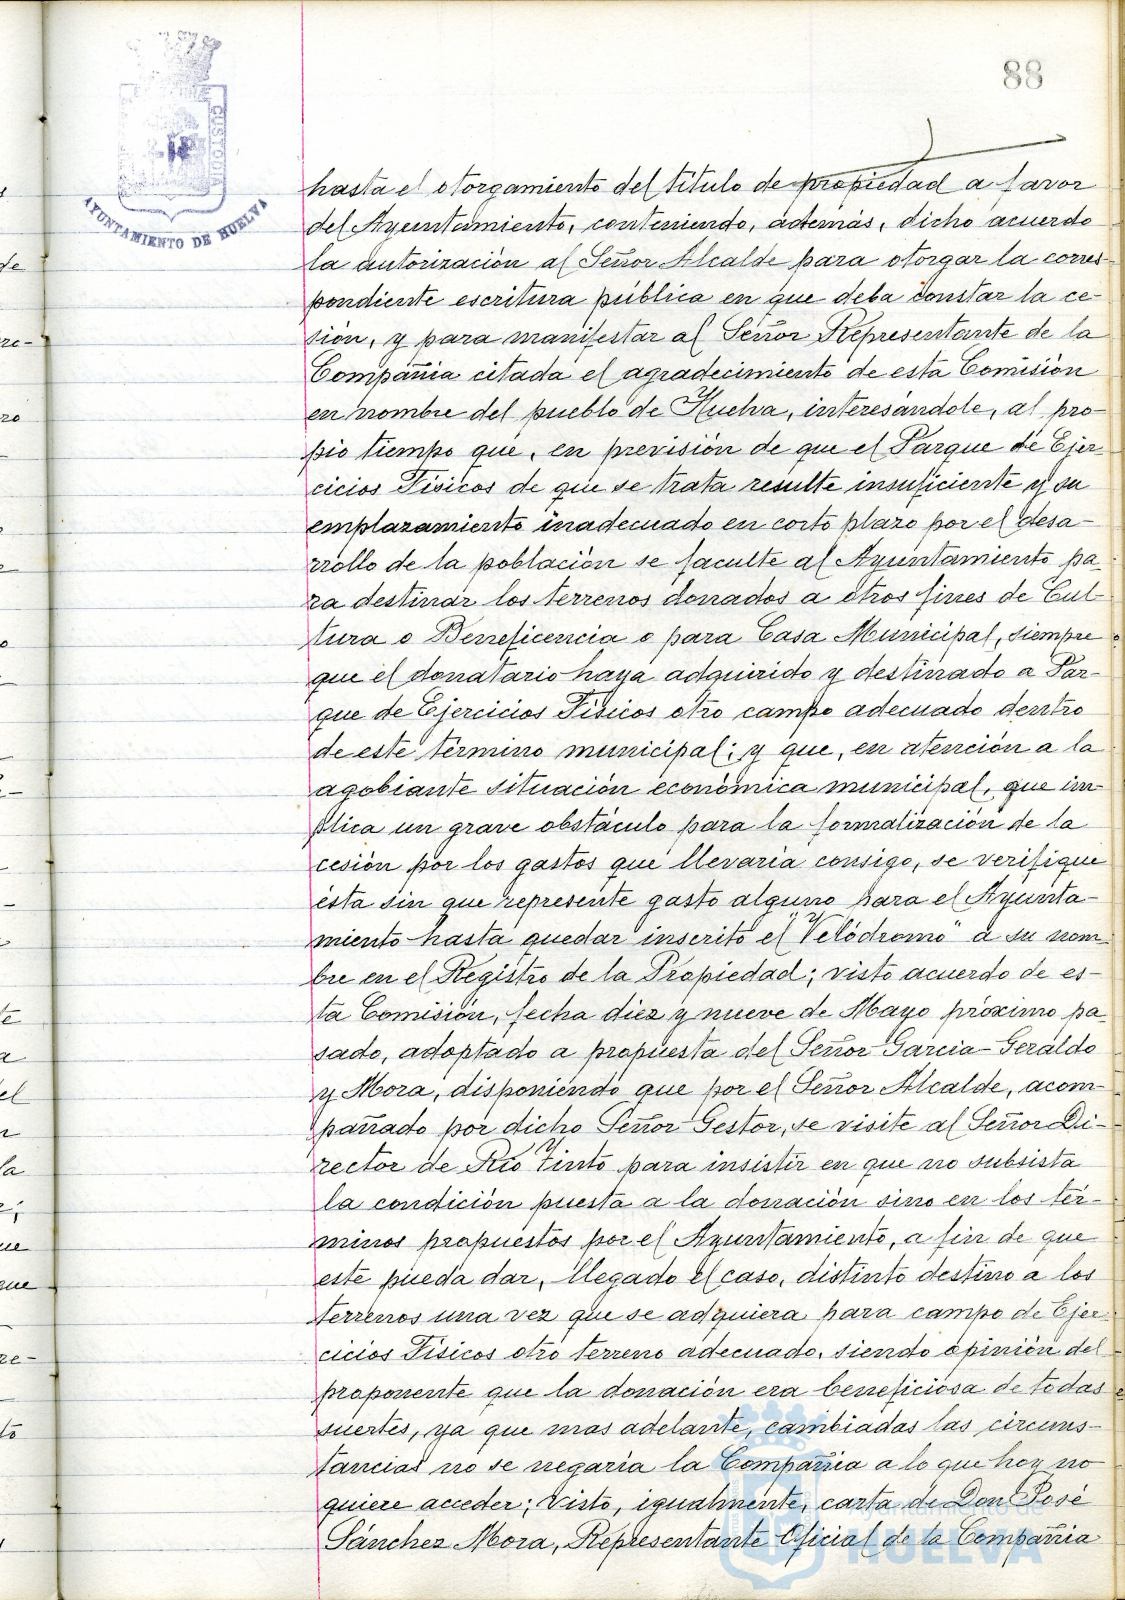 88
CUSTODI
AYUNTAMIENTO DE HUELVA
hasta el otorgamiento del título de propiedad a favor
del Ayuntamiento, conteniendo, además, dicho acuerdo
la autorización al Señor Alcalde para otorgar la corres-
pondiente escritura pública en que deba constar la ce-
sión, y para manifestar al Señor Representante de la
Compañia citada el agradecimiento de esta Comisión
en nombre del pueblo de Huelva, interesándole, al pro-
pio tiempo que, en previsión de que el Parque de Ejer-
cicios Físicos de que se trata resulte insuficiente y su
emplazamiento inadecuado en corto plazo por el desa-
rrollo de la población se faculte al Ayuntamiento pa-
ra destinar los terrenos donados a otros fines de Cul-
tura o Beneficencia o para Casa Municipal, siempre
que el donatario haya adquirido y destinado a Par-
que de Ejercicios Físicos otro campo adecuado dentro
de este término municipal; y que, en atención a la
agobiante situación económica municipal, que im-
plica un grave obstáculo para la formalización de la
cesión por los gastos que llevaría consigo, se verifique
ésta sin que represente gasto alguno para el Ayunta-
miento hasta quedar inscrito el "Velódromo" a su nom-
bre en el Registro de la Propiedad; visto acuerdo de es-
ta Comisión, fecha diez y nueve de Mayo próximo pa-
sado, adoptado a propuesta del Señor García-Geraldo
y Mora, disponiendo que por el Señor Alcalde, acom-
pañado por dicho Señor Gestor, se visite al Señor Di-
rector de Río Tinto para insistir en que no subsista
la condición puesta a la donación sino en los tér-
minos propuestos por el Ayuntamiento, a fin de que
este pueda dar, llegado el caso, distinto destino a los
terrenos una vez que se adquiera para campo de Ejer-
cicios Físicos otro terreno adecuado, siendo opinión del
proponente que la donación era beneficiosa de todas
suertes, ya que mas adelante, cambiadas las circuns-
tancias no se negaría la Compañia a lo que hoy no
quiere acceder; visto, igualmente, carta de Don José
Sánchez Mora, Representante Oficial de la Compañia
Ayuntamiento de
HUELVA